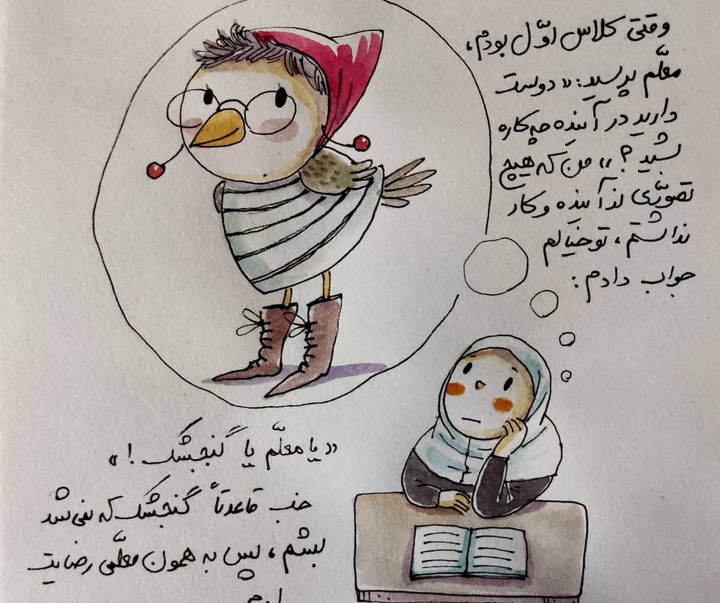 وقتی کلاس اوّل بودم،
معلّم پرسید: «دوست
دارید در آینده چه‌کاره
بشید؟» من که هیچ
تصوّری از آینده و کار
نداشتم، تو خیالم
جواب دادم:
«یا معلّم یا گنجشک!»
خب قاعدتاً گنجشک که نمی‌شد
بشم، پس به همون معلّمی رضایت